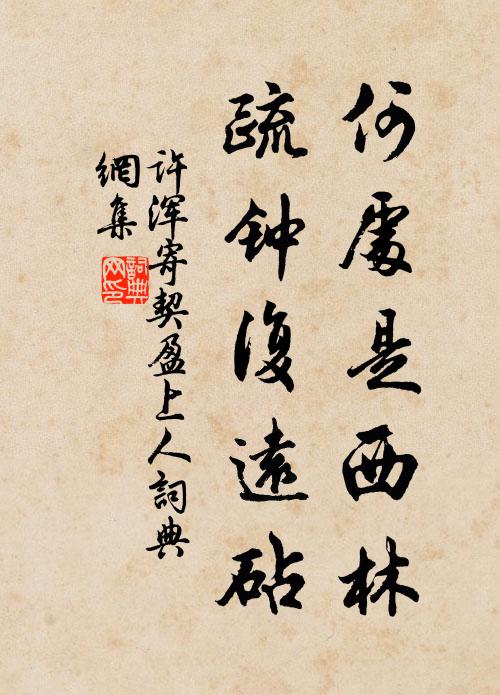 何處是西林
疏钟復遠砧
许浑寄契盈上人詞典
網集
詞典
网印